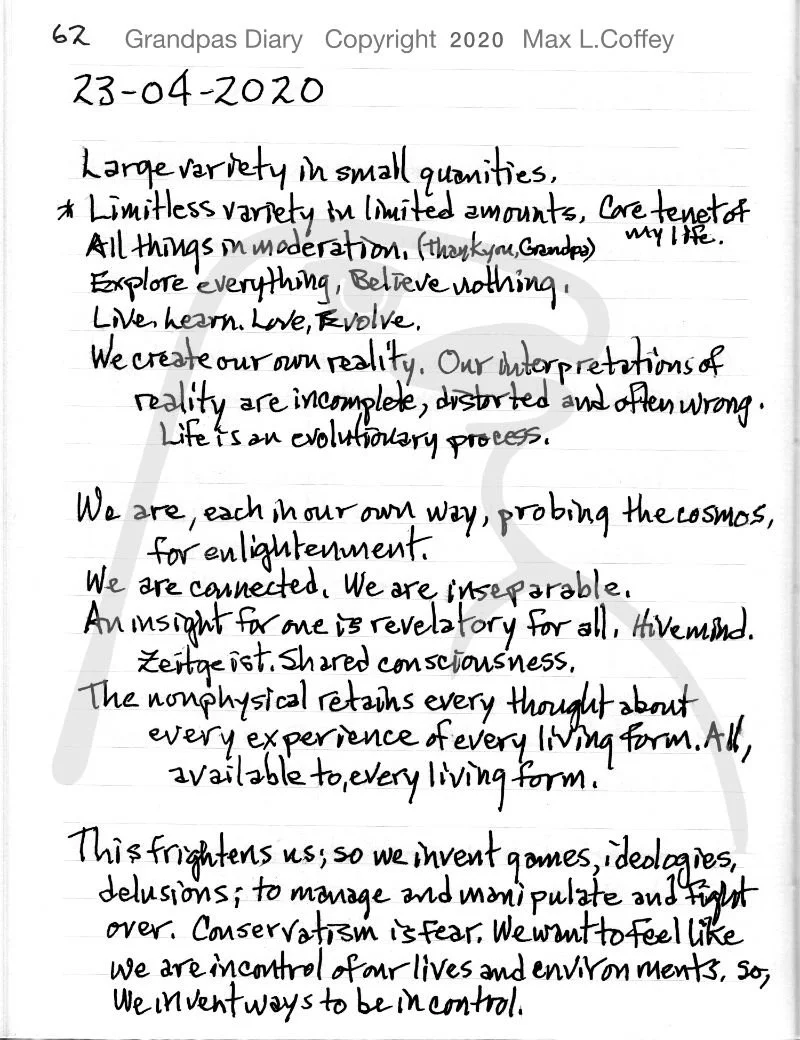 62 Grandpas Diary Copyright 2020 Max L.Coffey
23-04-2020
Large variety in small quanities.
* Limitless variety in limited amounts. Core tenet of
my life.
All things in moderation. (Thank you, Grandpa)
Explore everything, Believe nothing.
Live. Learn. Love, Evolve.
We create our own reality. Our interpretations of
reality are incomplete, distorted and often wrong.
Life is an evolutionary process.
We are, each in our own way, probing the cosmos,
for enlightenment.
We are connected. We are inseparable.
An insight for one is revelatory for all. Hivemind.
Zeitgeist. Shared consciousness.
The nonphysical retains every thought about
every experience of every living form. All,
available to, every living form.
This frightens us; so we invent games, ideologies,
delusions; to manage and manipulate and fight
over. Conservatism is fear. We want to feel like
we are in control of our lives and environments. So,
We invent ways to be in control.